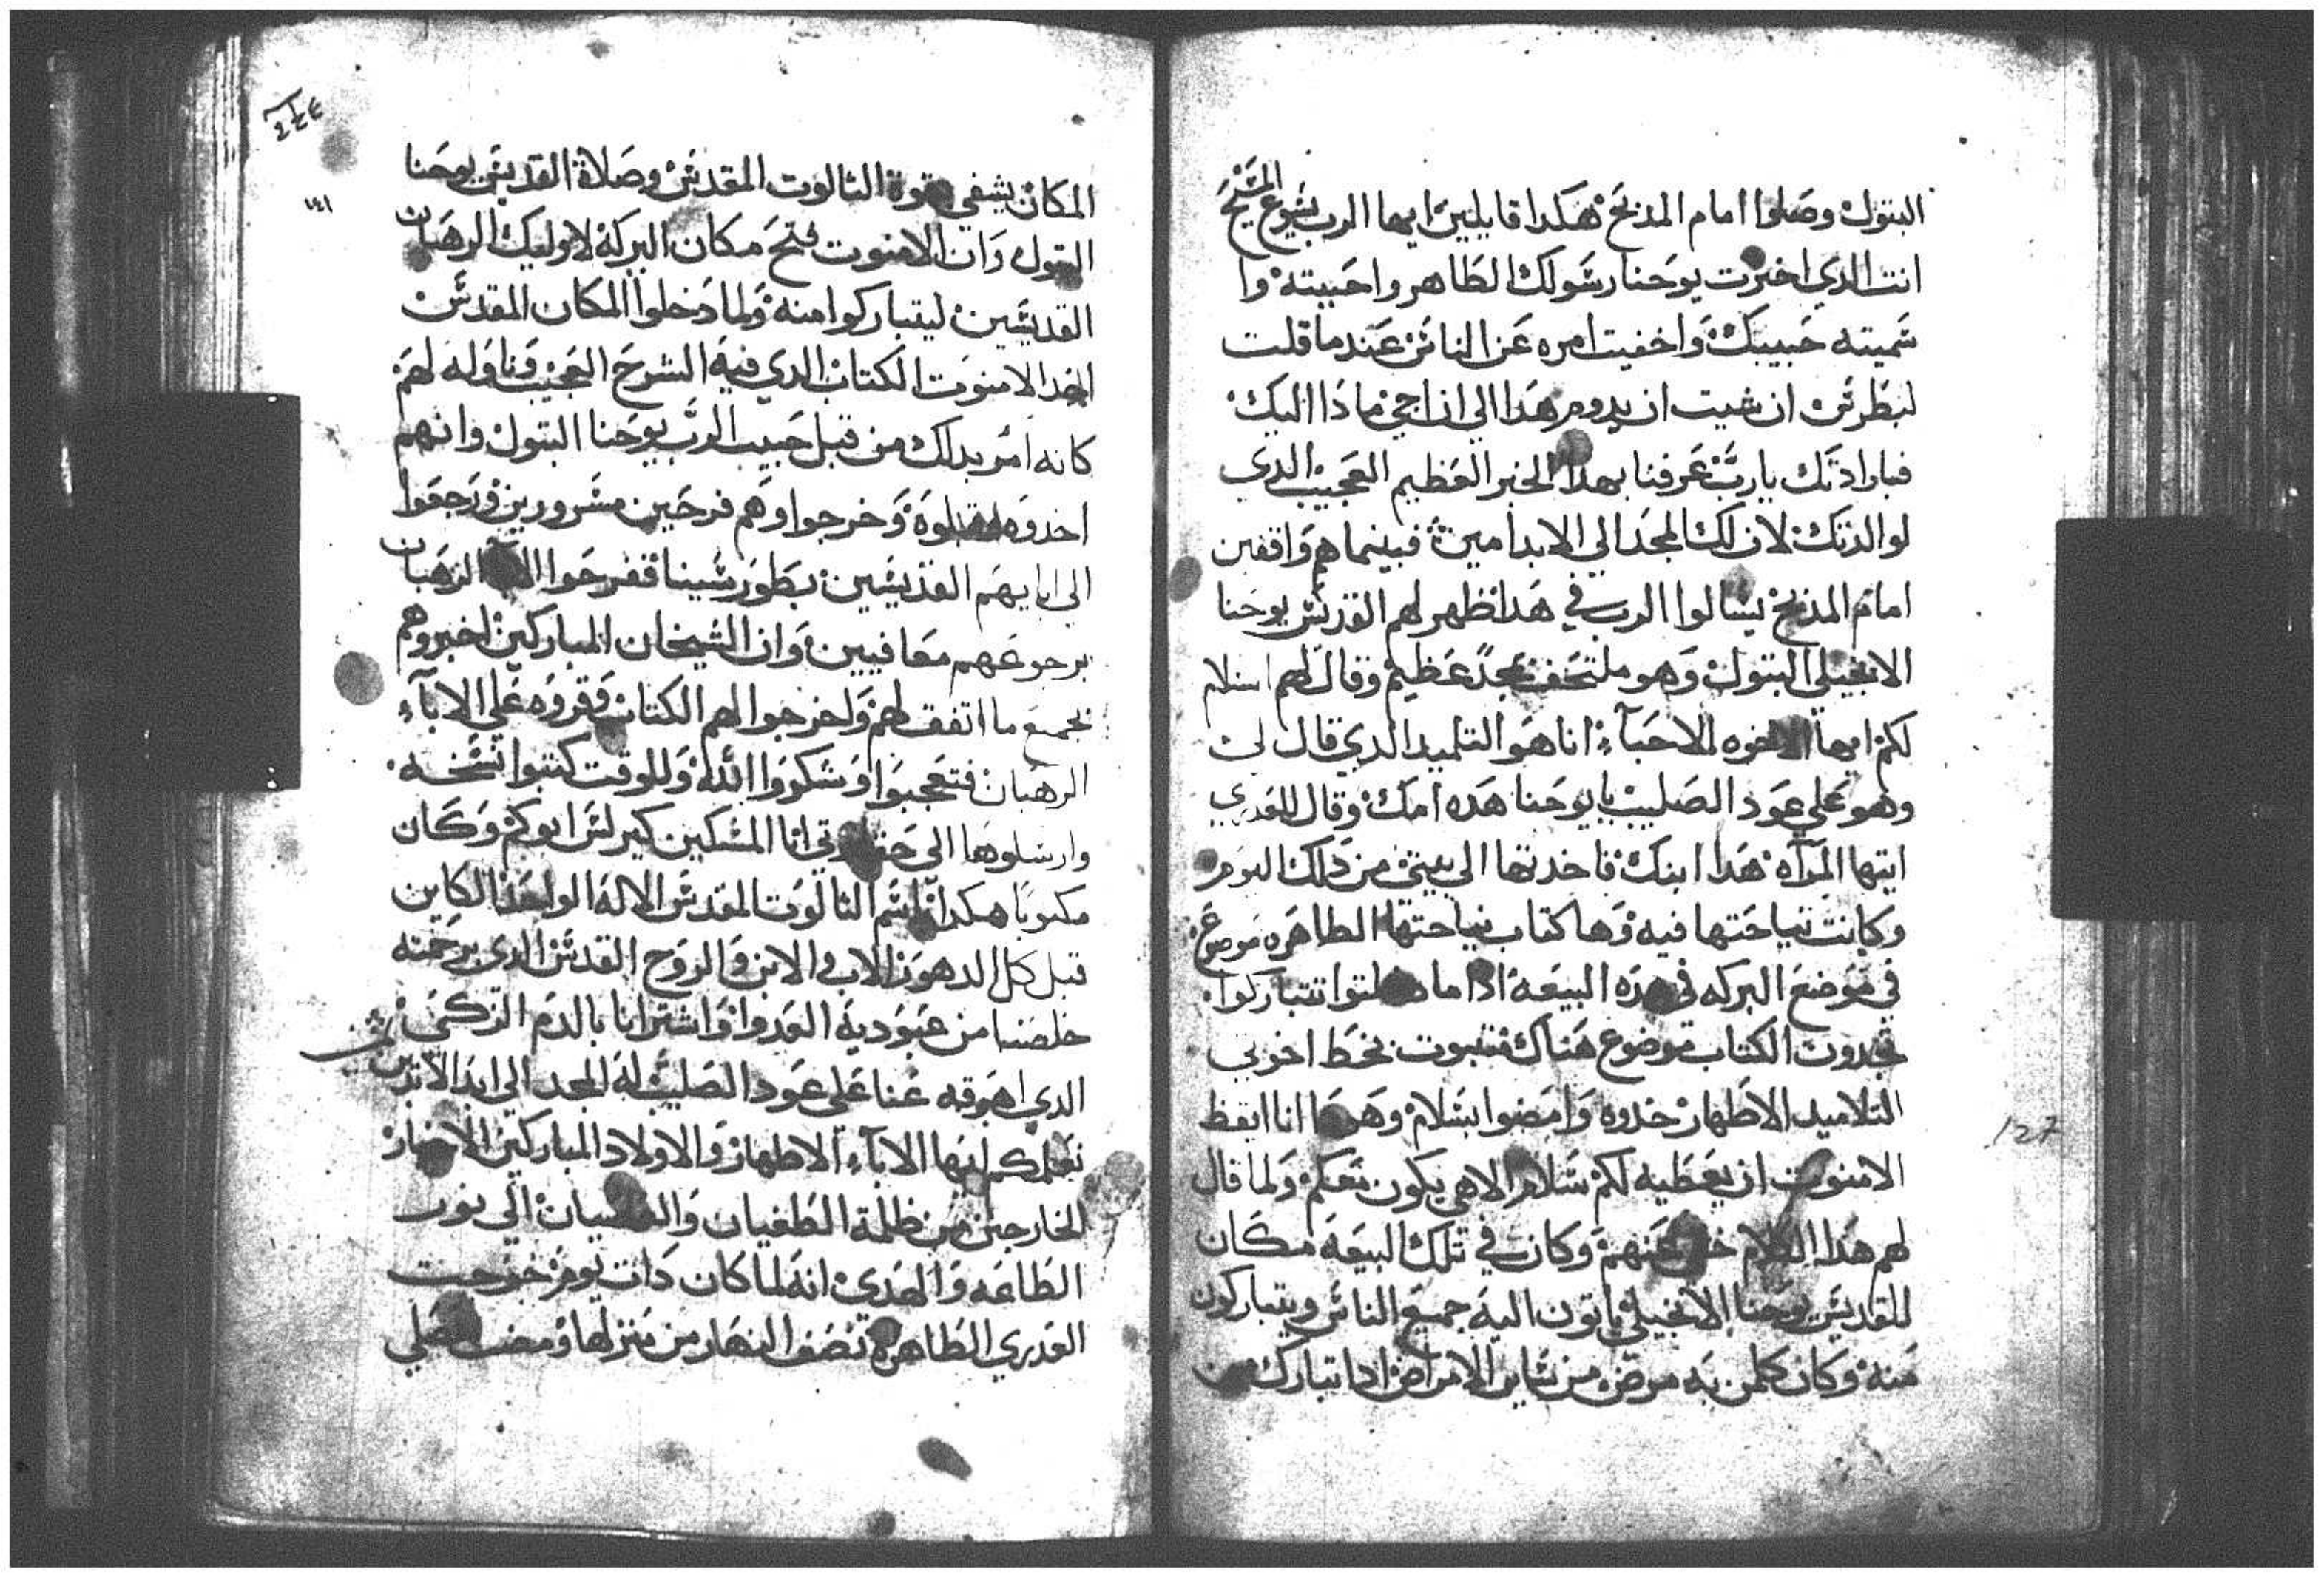 البتول وصلوا امام المذبح هكدا قايلين ايها الرب يشوع المشيح
انت الدي اخترت يوحنا رسولك الطاهر واحبيته وا
سميته حبيبك واخفيت امره عن الناس عندما قلت
لبطرس ان شيت ان يدوم هدا الي ان اجي ماذا اليك
فبارادتك يارب عرفنا بهدا الخبر العظيم العجيب الدي
لوالدتك لان لك المجد الي الابد امين فبينما هم واقفين
امام المذبح يسالوا الرب في هدا ظهر لهم القديس يوحنا
الانجيلي البتول وهو ملتحف بمجد عظيم وقال لهم السلام
لكم ايها الاخوه الاحبآء انا هو التلميد الدي قال لي
وهو علي عود الصليب يا يوحنا هده امك وقال للعدري
ايتها المرآه هدا ابنك فاخدتها الي بيتي من دلك اليوم
وكانت نياحتها فيه وها كتاب نياحتها الطاهره موضوع
في موضع البركه في هده البيعه ادا ما دخلتوا تتباركوا
تجدون الكتاب موضوع هناك مكتوب بخط اخوتي
التلاميد الاطهار خدوه وامضوا بسلام وهودا انا ايقظ
الامنوت ان يعطيه لكم سلام الاهي يكون معكم ولما قال
لهم هدا الكلام خفي عنهم وكان في تلك البيعه مكان
للقديس يوحنا الانجيلي ياتون اليه جميع الناس ويتباركون
منه وكان كلمن به مرض من ساير الامراض ادا تبارك من
127
٢٤٤
١٤١
المكان يشفي بقوة التالوت المقدس وصلاة القديس يوحنا
البتول وان الامنوت فتح مكان البركة لاوليك الرهبان
القديسين ليتباركوا منه ولما دخلوا المكان المقدس
اخد الامنوت الكتاب الدي فيه الشرح العجيب وناوله لهم
كانه امر بدلك من قبل حبيب الرب يوحنا البتول وانهم
اخدوه وقبلوه وخرجوا وهم فرحين مسرورين ورجعوا
الي ابايهم القديسين بطور سينا ففرحوا الابا الرهبان
برجوعهم معافيين وان الشيخان المباركين اخبروهم
بجميع ما اتفق لهم واخرجوا لهم الكتاب وقروه علي الابآء
الرهبان فتعجبوا وشكروا الله وللوقت كتبوا نسخه
وارسلوها الي حقارتي انا المسكين كيرلس ابوكم وكان
مكتوبا هكدا باسم التالوت المقدس الاله الواحد الكاين
قبل كل الدهور الاب والابن والروح القدس الدي برحمته
خلصنا من عبودية العدو واشترانا بالدم الزكي
الدي اهرقه عنا علي عود الصليب له المجد الي ابد الابدين
نعلمكم ايها الابآء الاطهار والاولاد المباركين الاخيار
الخارجين من ظلمة الطغيان والعصيان الي نور
الطاعه والهدي انه لما كان دات يوم خرجت
العدري الطاهرة نصف النهار من منزلها ومضت تصلي